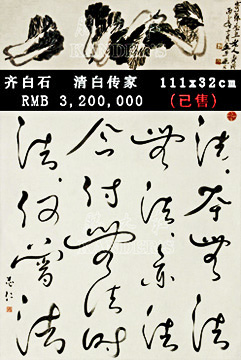 齐白石 清白传家 111x32cm
RMB 3,200,000 (已售)
法〻本無法
無法〻亦法
今付無法時
法〻何曾法